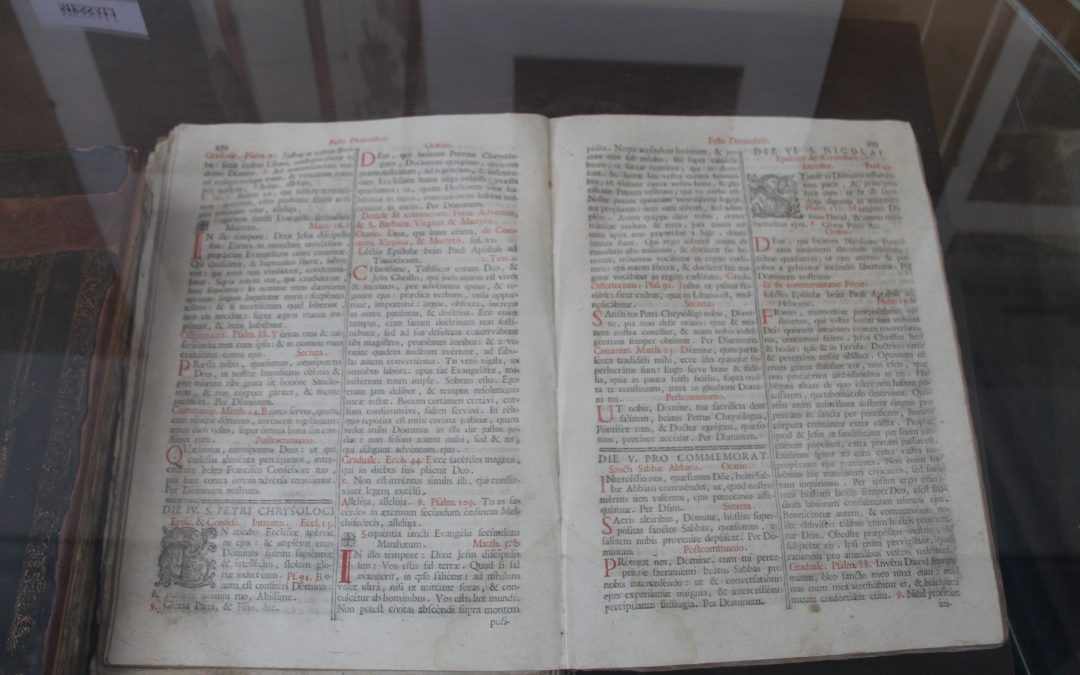 MESSALI
Festa Decembris.
Graduale. Psalm. Justus ut palma
Alleluja, alleluja.
Sequentia sancti Evangelii secundum
Marcum. Marc. 16.
IN illo tempore: Dixit Jesus discipulis
suis: Euntes in mundum universum
prædicate Evangelium omni creaturæ.
Qui crediderit, & baptizatus fuerit, salvus
erit: qui verò non crediderit, condemnabitur.
Signa autem eos, qui crediderint,
hæc sequentur: In nomine meo dæmonia
ejicient: linguis loquentur novis: serpentes
tollent: & si mortiferum quid biberint
non eis nocebit: super ægros manus imponent,
& bene habebunt.
Offertorium. Psalm. 88. Veritas mea & misericordia
mea cum ipso: & in nomine meo
exaltabitur cornu ejus. Secreta.
PRæsta nobis, quæsumus, omnipotens
Deus, ut nostræ humilitatis oblatio &
pro tuorum tibi grata sit honore Sanctorum,
& nos corpore pariter, & mente
purificet. Per Dominum.
Communio. Matth. 24. Beatus servus, quem,
cum venerit dominus, invenerit vigilantem:
amen dico vobis, super omnia bona sua constituet
eum. Postcommunio.
QUæsumus, omnipotens Deus: ut qui
cœlestia alimenta percepimus, intercedente
beato Francisco Confessore tuo,
per hæc contra omnia adversa muniamur.
Per Dominum nostrum.
DIE IV. S. PETRI CHRYSOLOGI
Episc. & Confess. Introitus. Eccl. 15.
IN medio Ecclesiæ aperuit
os ejus: & implevit eum
Dominus spiritu sapientiæ
& intellectus, stolam gloriæ
induit eum. Ps. 91. Bonum
est confiteri Domino:
& psallere nomini tuo, Altissime.
℣. Gloria Patri, & Filio, &c.
Oratio.
DEus, qui beatum Petrum Chrysologum
Doctorem egregium, divinitus
præmonstratum, ad regendam, & instruendam
Ecclesiam tuam eligi voluisti: præsta
quæsumus, ut, quem Doctorem vitæ habuimus
in terris, intercessorem habere mereamur
in cælis. Per Dominum.
Deinde fit commemoratio Feriæ Adventus,
& S. Barbaræ Virginis & Martyris.
Oratio. Deus, qui inter cætera, de Communi
Virginis, & Martyris, fol. xli.
Lectio Epistolæ beati Pauli Apostoli ad
Timotheum. 2. Tim. 4.
CHarissime, Testificor coram Deo, &
Jesu Christo, qui judicaturus est vivos
& mortuos, per adventum ipsius, & regnum
ejus: prædica verbum, insta opportunè,
importunè: argue, obsecra, increpa
in omni patientia, & doctrina. Erit enim
tempus, cum sanam doctrinam non sustinebunt,
sed ad sua desideria coacervabunt
sibi magistros, prurientes auribus: & à veritate
quidem auditum avertent, ad fabulas
autem convertentur. Tu verò vigila, in
omnibus labora: opus fac Evangelistæ, ministerium
tuum imple. Sobrius esto. Ego
enim jam delibor, & tempus resolutionis
meæ instat. Bonum certamen certavi, cursum
consummavi, fidem servavi. In reliquo
reposita est mihi corona justitiæ, quam
reddet mihi Dominus in illa die justus judex:
non solum autem mihi, sed & iis,
qui diligunt adventum ejus.
Graduale. Eccli. 44. Ecce sacerdos magnus,
qui in diebus suis placuit Deo.
℣. Non est inventus similis illi, qui conservaret
legem excelsi.
Alleluja, alleluja. ℣. Psalm. 109. Tu es sacerdos
in æternum secundùm ordinem Melchisedech,
alleluja.
Sequentia sancti Evangelii secundùm
Matthæum. Matth. 5. b
IN illo tempore: Dixit Jesus discipulis
suis: Vos estis sal terræ. Quod si sal
evanuerit, in quo salietur? ad nihilum
valet ultra, nisi ut mittatur foras, & conculcetur
ab hominibus. Vos estis lux mundi.
Non potest civitas abscondi supra montem
posi-
Festa Decembris.
posita. Neque accendunt lucernam, & ponunt
eam sub modio, sed super candelabrum,
ut luceat omnibus, qui in domo
sunt. Sic luceat lux vestra coram hominibus,
ut videant opera vestra bona, & glorificent
Patrem vestrum, qui in cælis est.
Nolite putare quoniam veni solvere legem,
aut prophetas: non veni solvere, sed adimplere.
Amen quippe dico vobis, donec
transeat cælum & terra, jota unum aut
unus apex non præteribit à lege, donec
omnia fiant. Qui ergo solverit unum de
mandatis istis minimis, & docuerit sic homines,
minimus vocabitur in regno cælorum:
qui autem fecerit, & docuerit hic magnus
vocabitur in regno cælorum. Credo.
Offertorium. Psal. 91. Justus ut palma florebit:
sicut cedrus, quæ in Libano est, multiplicabitur.
Secreta.
SAncti tui Petri Chrysologi nobis, Domine,
pia non desit oratio: quæ & munera
nostra conciliet, & tuam nobis indulgentiam
semper obtineat. Per Dominum.
Communio. Matth. 25. Domine, quinque
talenta tradidisti mihi, ecce alia quinque superlucratus
sum: Euge serve bone & fidelis,
quia in pauca fuisti fidelis, supra multa
te constituam, intra in gaudium Domini
tui. Postcommunio.
UT nobis, Domine, tua sacrificia dent
salutem, beatus Petrus Chrysologus,
Pontifex tuus, & Doctor egregius, quæsumus,
precator accedat. Per Dominum.
DIE V. PRO COMMEMORAT.
Sancti Sabbæ Abbatis. Oratio.
INtercessio nos, quæsumus Dñe, beati Sabbæ
Abbatis commendet, ut, quod nostris
meritis non valemus, ejus patrocinio assequamur.
Per Dñum. Secreta.
SAcris altaribus, Domine, hostias superpositas
sanctus Sabbas, quæsumus, in
salutem nobis provenire deposcat. Per Dominum.
Postcommunio.
PRotegat nos, Domine, cum tui perceptione
sacramenti beatus Sabbas pro
nobis intercedendo: ut & conversationis
ejus experiamur insignia, & intercessionis
percipiamus suffragia. Per Dominum.
DIE VI. S. NICOLAI
Episcopi & Confessoris.
Introitus. Eccl. 45.
STatuit ei Dominus testamentum
pacis, & principem
fecit eum: ut sit illi sacerdotii
dignitas in æternum.
Psalm. 131. Memento Domine
David, & omnis mansuetudinis
ejus. ℣. Gloria Patri, &c.
Oratio.
DEus, qui beatum Nicolaum Pontificem
innumeris decorasti miraculis:
tribue quæsumus; ut ejus meritis & precibus
à gehennæ incendiis liberemur. Per
Dominum nostrum.
Et fit commemoratio Feriæ.
Lectio Epistolæ beati Pauli Apostoli ad
Hebræos. Hebr. 13. b
FRatres, mementote præpositorum vestrorum,
qui vobis locuti sunt verbum
Dei: quorum intuentes exitum conversationis,
imitamini fidem. Jesus Christus heri
& hodie: ipse & in sæcula. Doctrinis variis
& peregrinis nolite abduci. Optimum est
enim gratia stabilire cor, non escis, quæ
non profuerunt ambulantibus in eis. Habemus
altare de quo edere non habent potestatem,
qui tabernaculo deserviunt. Quorum
enim animalium infertur sanguis pro
peccato in sancta per pontificem, horum
corpora cremantur extra castra. Propter
quod & Jesus ut sanctificaret per suum sanguinem
populum, extra portam passus est.
Exeamus igitur ad eum extra castra improperium
ejus portantes. Non enim habemus
hic manentem civitatem, sed futuram
inquirimus. Per ipsum ergo offeramus
hostiam laudis semper Deo, id est fructum
labiorum confitentium nomini ejus.
Beneficentiæ autem, & communionis nolite
oblivisci: talibus enim hostiis promeretur
Deus. Obedite præpositis vestris, &
subjacete eis. Ipsi enim pervigilant, quasi
rationem pro animabus vestris reddituri.
Graduale. Psalm. 88. Inveni David servum
meum, oleo sancto meo unxi eum: manus
enim mea auxiliabitur ei, & brachium
meum confortabit eum. ℣. Nihil proficiet
ini-